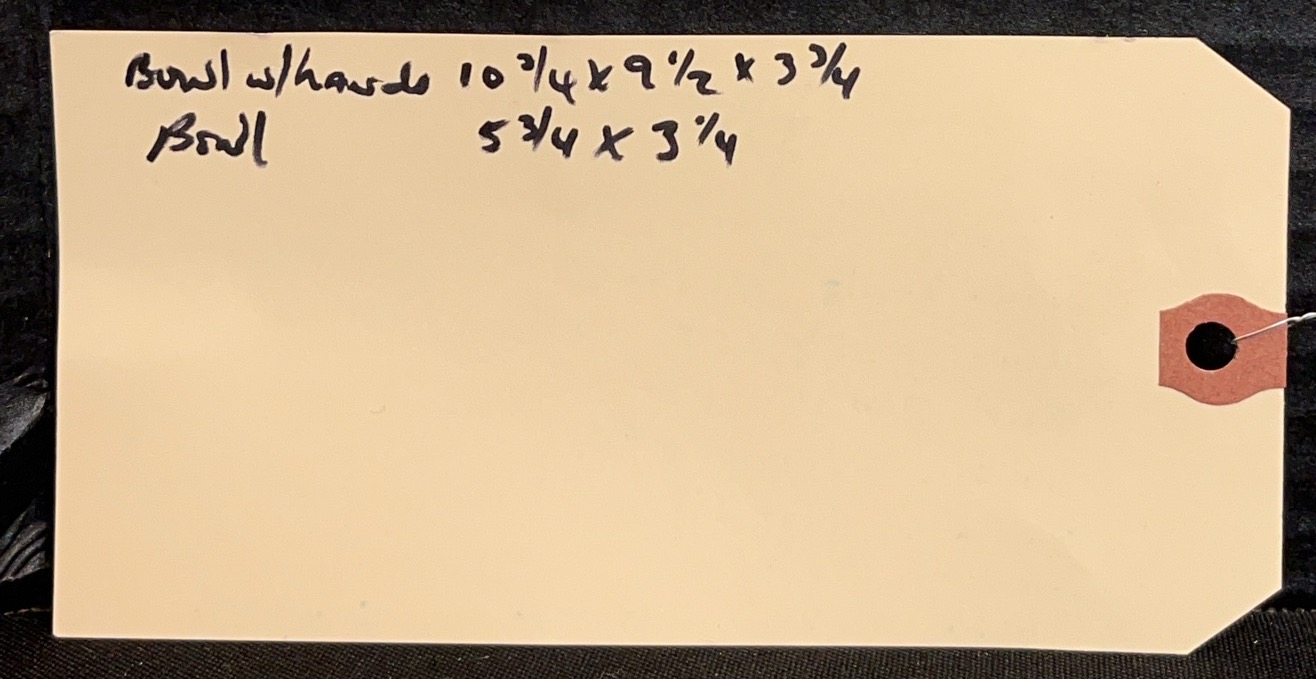 Bowl w/hands 10 3/4 x 9 1/2 x 3 3/4
Bowl 5 3/4 x 3 1/4